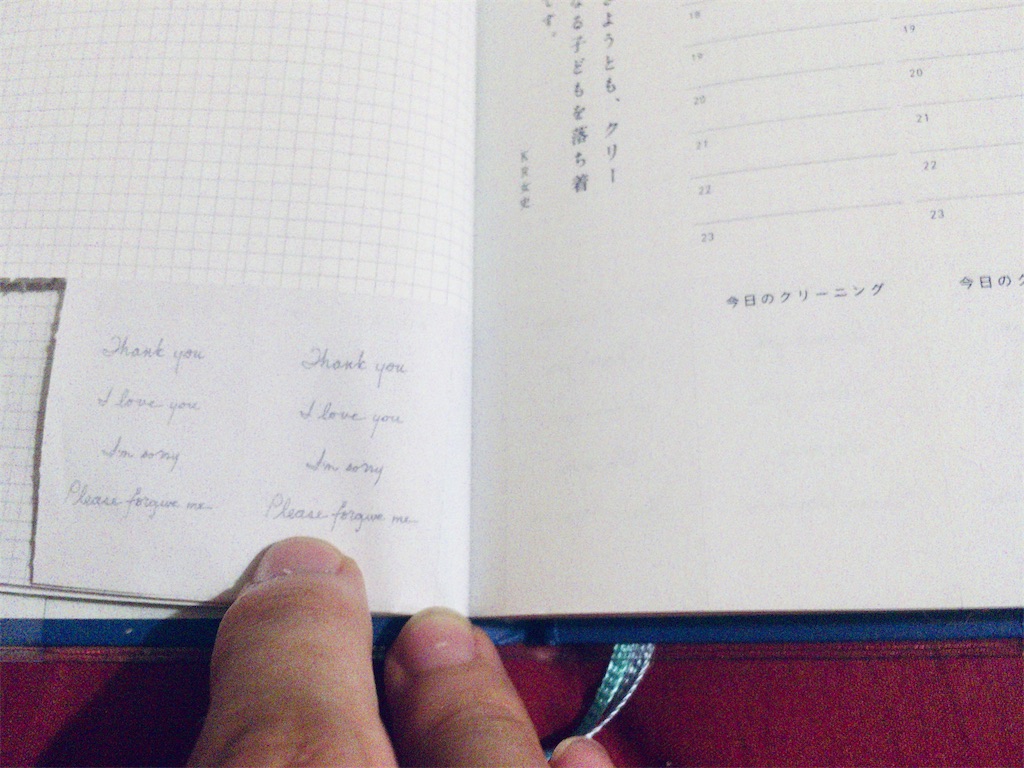 Thank you
I love you
I'm sorry
Please forgive me
Thank you
I love you
I'm sorry
Please forgive me
ようとも、クリー
なる子どもを落ち着
です。
KR女史
18
19
20
21
22
23
今日のクリーニング
19
20
21
22
23
今日のク